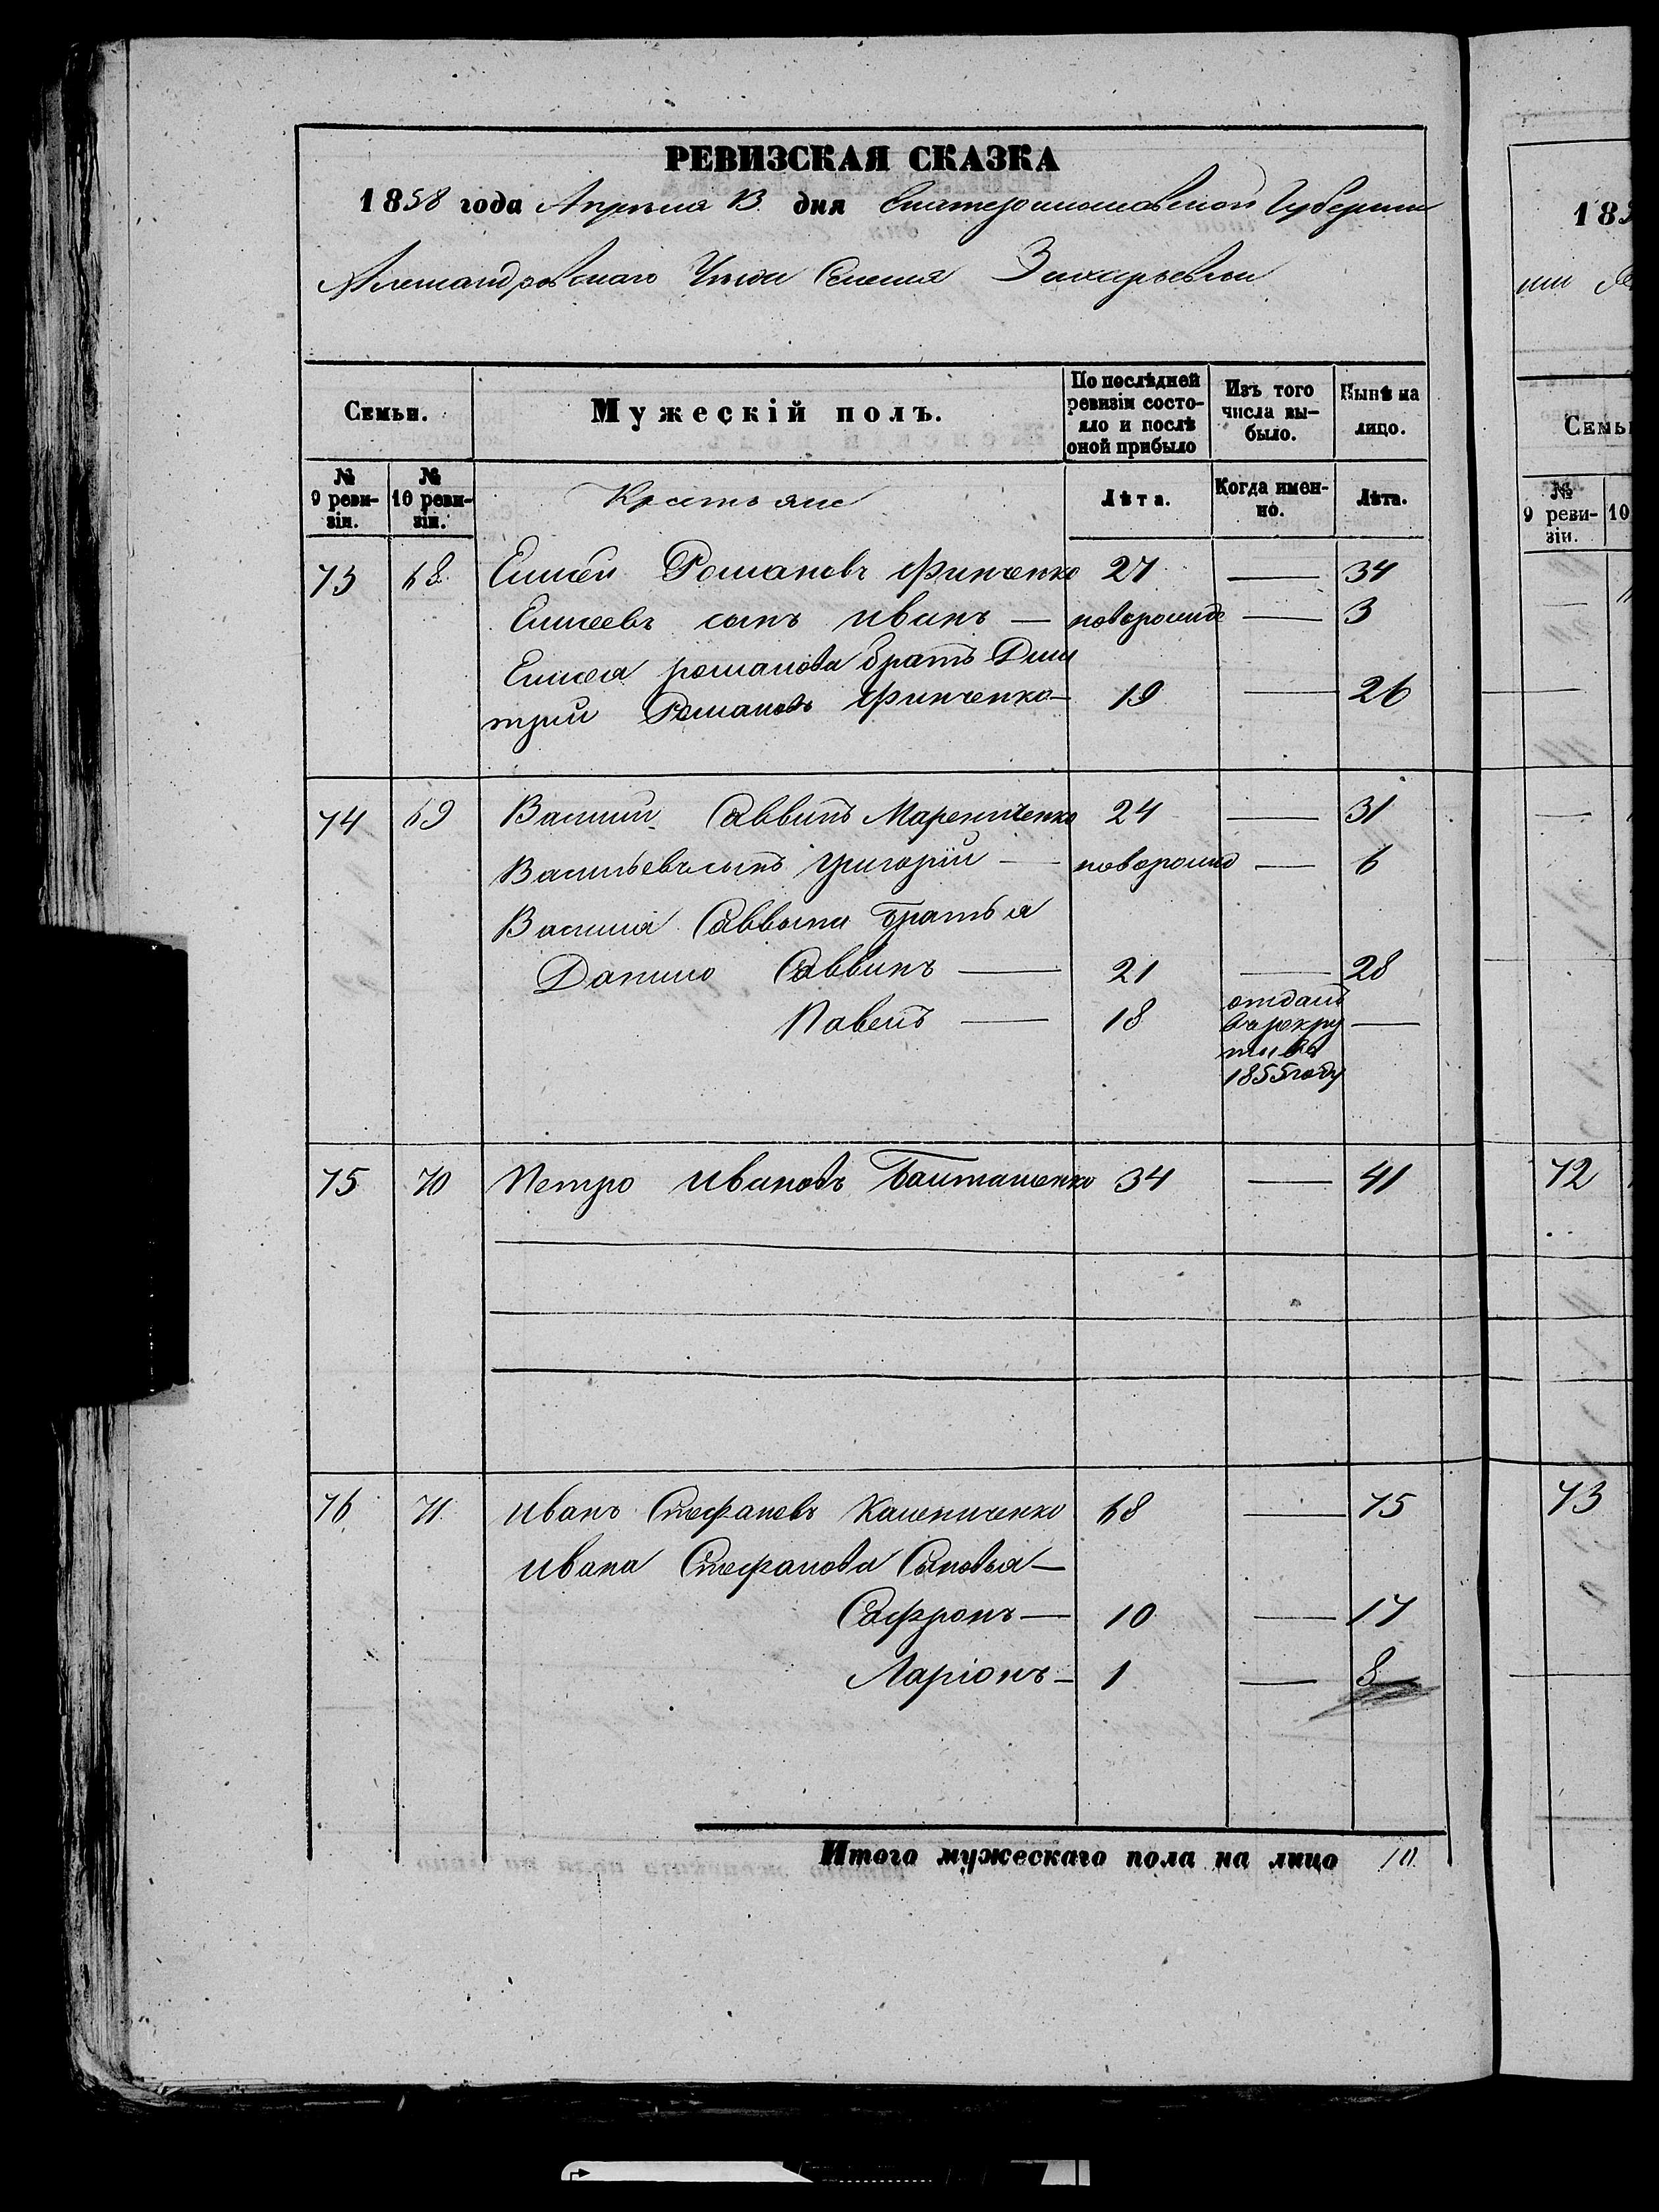 РЕВИЗСКАЯ СКАЗКА
1858 года Апрѣля 13 дня Екатеринославской Губернии
Александровскаго Уѣзда Селенія Захарьевки
Семьи. Мужескій полъ. По послѣдней ревизіи состояло и послѣ оной прибыло Изъ того числа выбыло. Нынѣ на лицо.
№ 9 ревизіи. № 10 ревизіи. Крестьяне Лѣта. Когда именно. Лѣта.
73 68 Елисей Романовъ Финченко 27 — 34
Елисеевъ сынъ Иванъ — новорожде — 3
Елисея романова братъ Дми
трий Романовъ Финченко — 19 — 26
74 69 Василий Саввинъ Марениченко 24 — 31
Васильевъ сынъ Григорий — новорожд — 6
Василия Саввина братья
Данило Саввинъ — 21 — 28
Павелъ — 18 отданъ —
в рекру
ты въ
1855 году
75 70 Петро Ивановъ Балташенко 34 — 41
76 71 Иванъ Стефановъ Калениченко 68 — 75
Ивана Стефанова Сыновья —
Софронъ — 10 — 17
Ларіонъ — 1 — 8
Итого мужескаго пола на лицо 10
183
Семьи
№ 9 ревизіи. 10
72
73